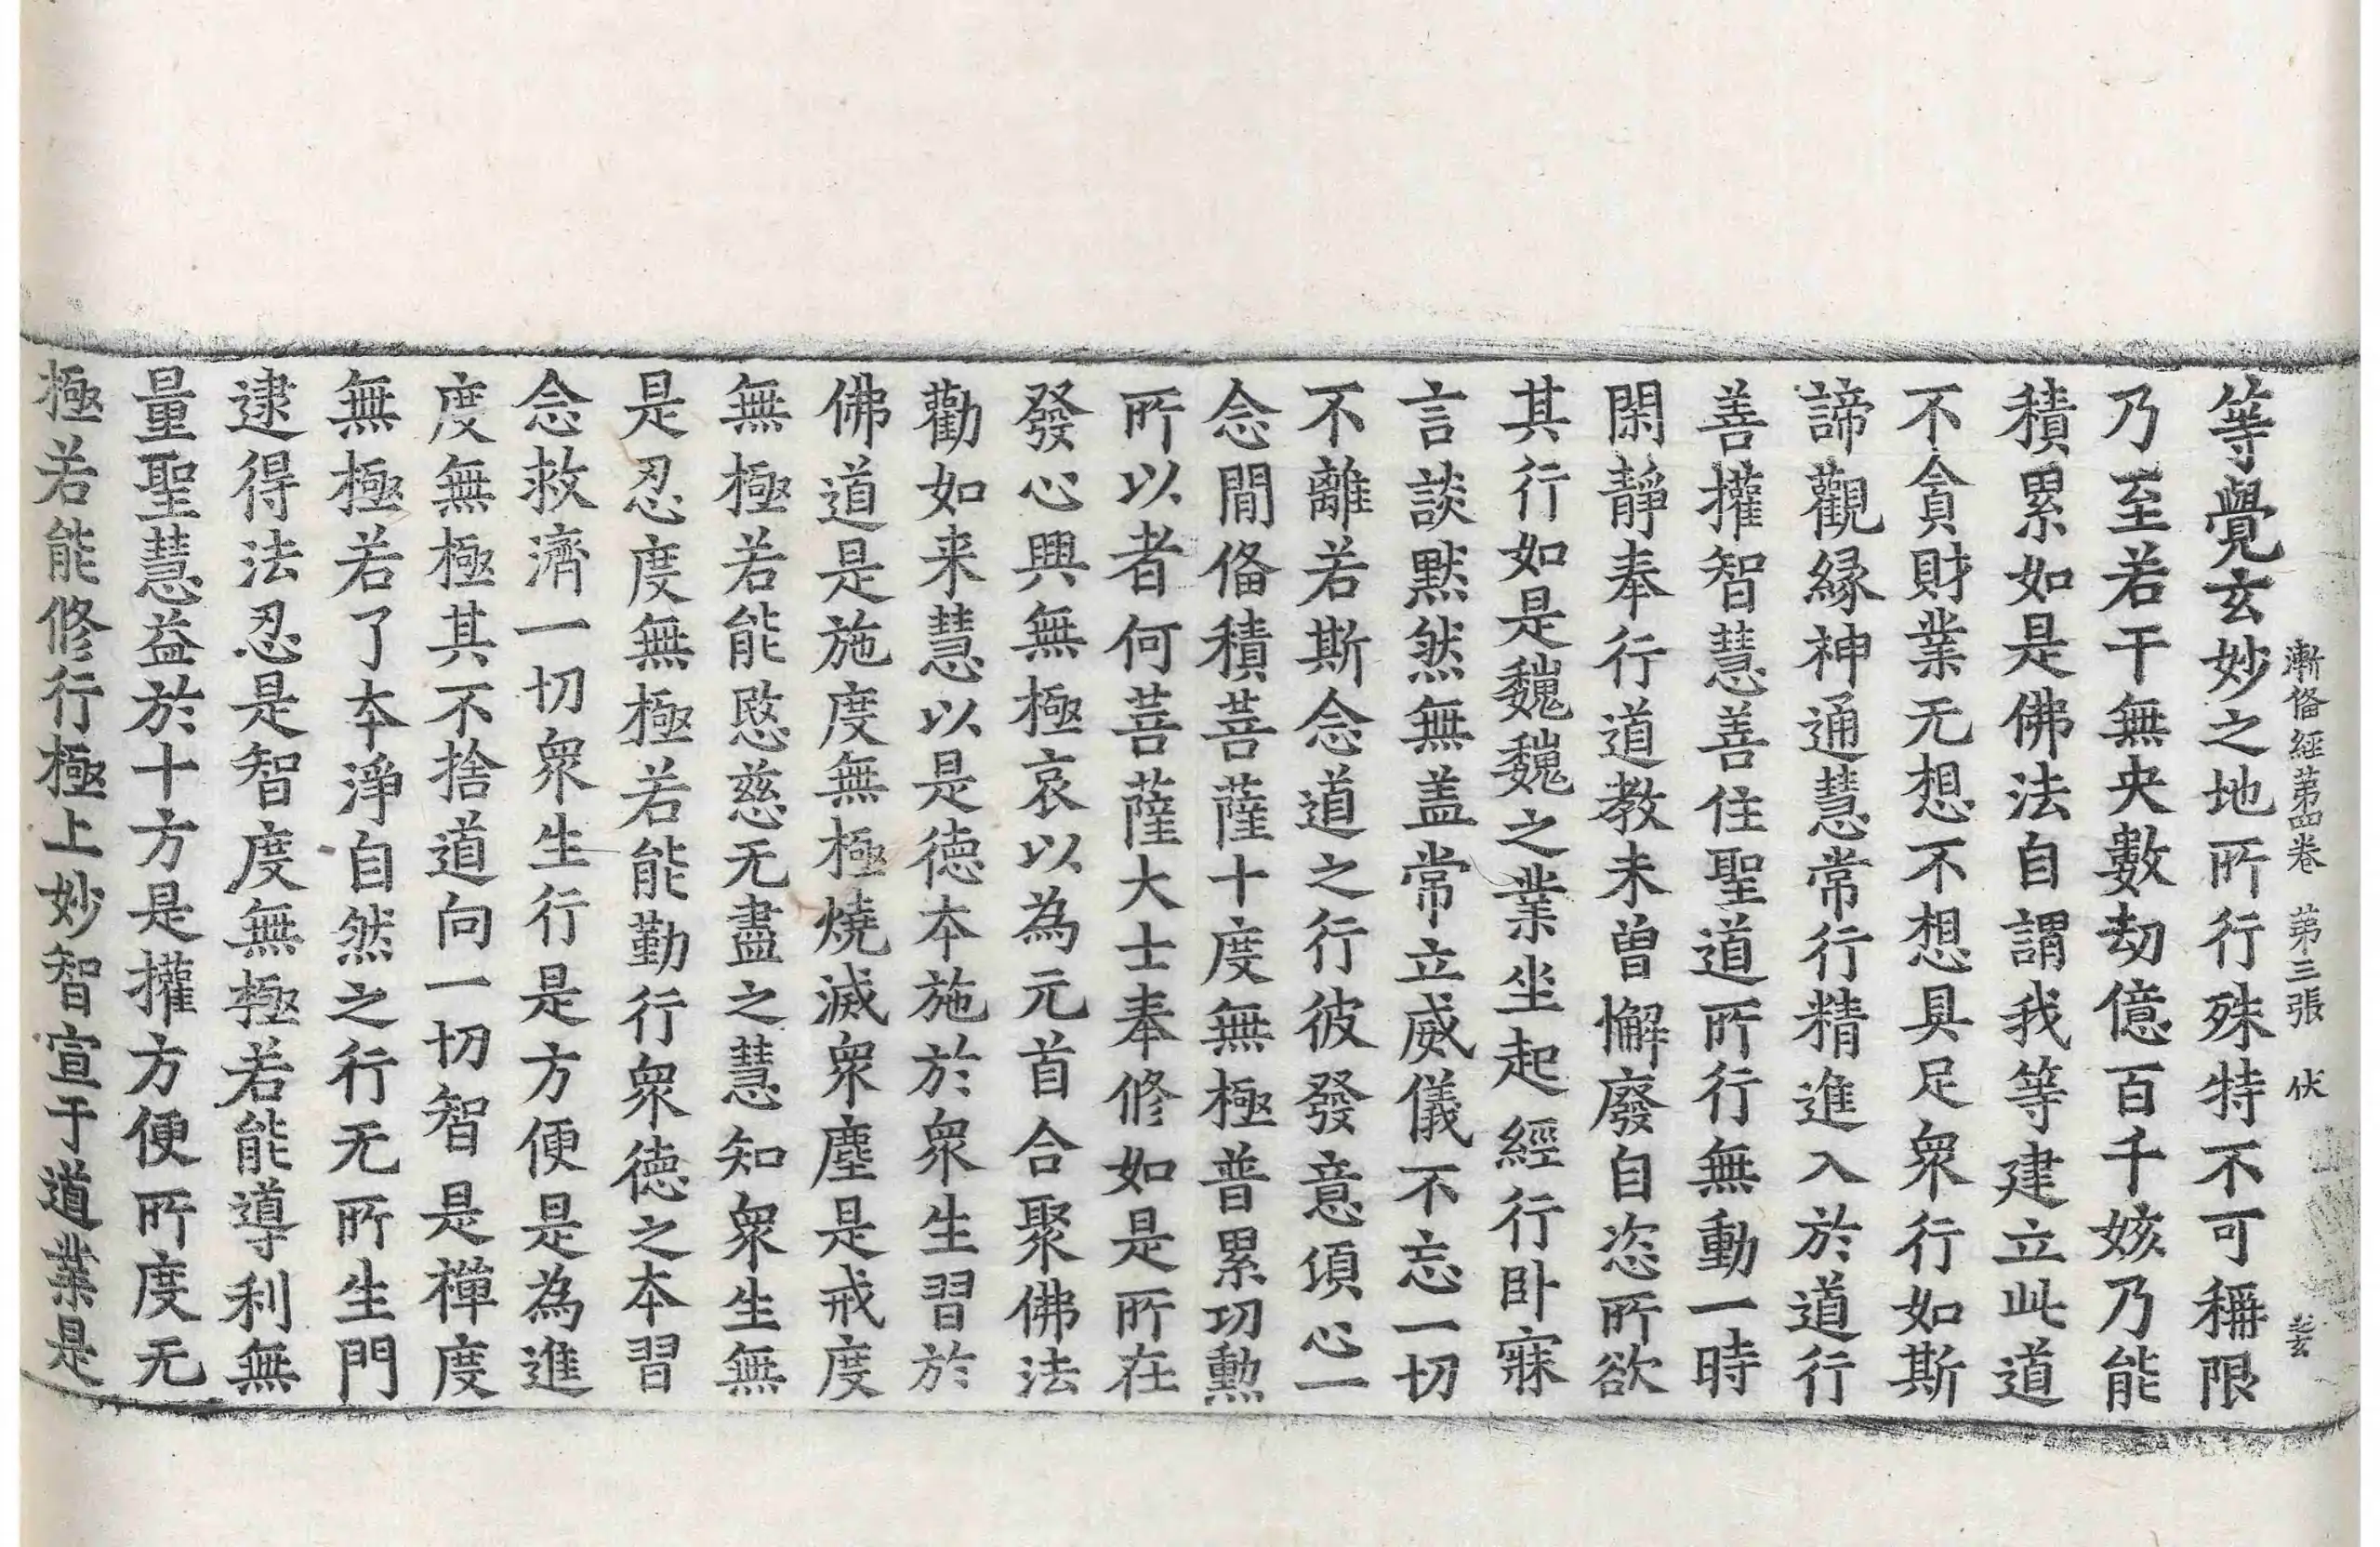 漸俻經第四卷　第三張　伏
等覺玄妙之地所行殊特不可稱限
乃至若干無央數劫億百千姟乃能
積累如是佛法自謂我等建立此道
不貪財業无想不想具足衆行如斯
諦觀縁神通慧常行精進入於道行
善攉智慧善住聖道所行無動一時
閑靜奉行道教未曽懈廢自恣所欲
其行如是巍巍之業坐起經行卧寐
言談黙然無盖常立威儀不忘一切
不離若斯念道之行彼發意項心一
念間俻積菩薩十度無極普累功勲
所以者何菩薩大士奉修如是所在
發心興無極哀以為元首合聚佛法
勸如来慧以是徳夲施於衆生習於
佛道是施度無極燒滅衆塵是戒度
無極若能愍慈无盡之慧知衆生無
是忍度無極若能勤行衆徳之夲習
念救濟一切衆生行是方便是為進
度無極其不捨道向一切智是禅度
無極若了夲淨自然之行无所生門
逮得法忍是智度無極若能導利無
量聖慧益於十方是攉方便所度无
極若能修行極上妙智宣于道業是